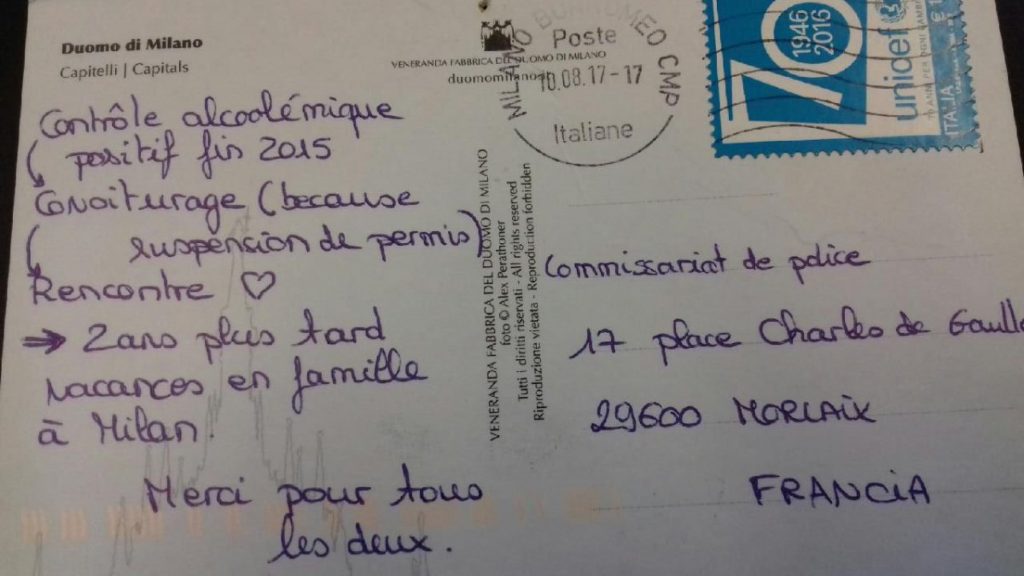 Duomo di Milano
Capitelli | Capitals
Contrôle alcoolémique
positif fin 2015
Covoiturage (because
suspension de permis)
Rencontre ♡
→ 2 ans plus tard
vacances en famille
à Milan.
Merci pour tous
les deux.
VENERANDA FABBRICA DEL DUOMO DI MILANO
duomomilano.it
MILANO BORROMEO CMP
Poste
10.08.17-17
Italiane
1946
2016
70
unicef
ITALIA
VENERANDA FABBRICA DEL DUOMO DI MILANO
foto © Alex Perathoner
Tutti i diritti riservati - All rights reserved
Riproduzione vietata - Reproduction forbidden
Commissariat de police
17 place Charles de Gaulle
29600 MORLAIX
FRANCIA